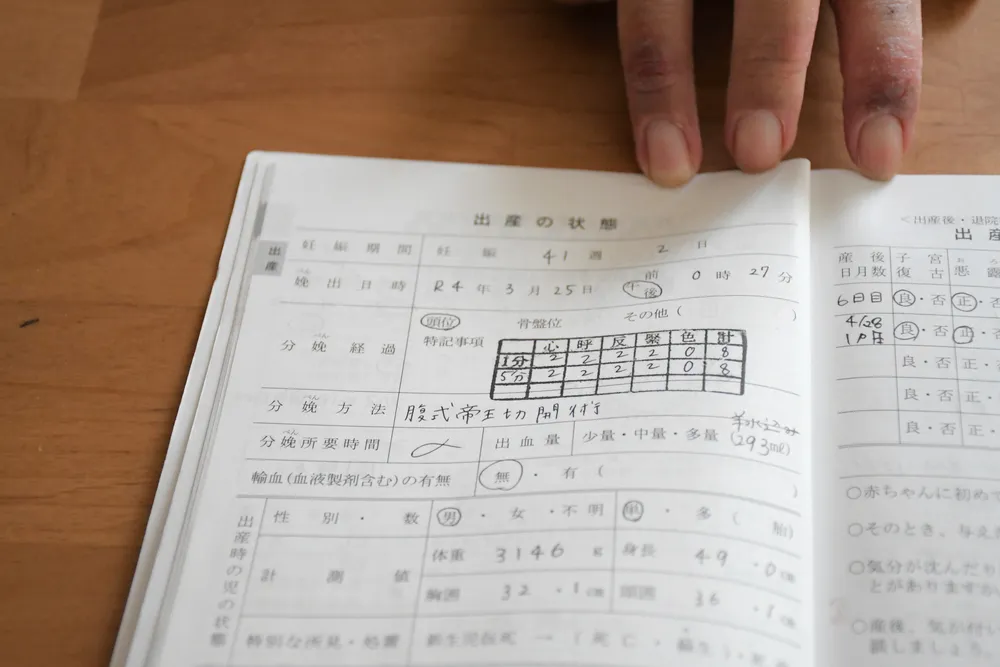 出産の状態
出産
妊娠期間 妊娠 41 週 2 日
分娩日時 R4 年 3 月 25 日 午 前 後 0 時 27 分
べん
分娩経過 頭位 骨盤位 その他( )
特記事項
心 呼 反 緊 色 計
1分 2 2 2 2 0 8
5分 2 2 2 2 0 8
べん
分娩方法 腹式帝王切開術
べん
分娩所要時間 出血量 少量・中量・多量 (293ml)
輸血(血液製剤含む)の有無 無・有( )
出産時の児の状態
性別・数 男・女・不明 単・多( 胎)
計測値 体重 3146 g 身長 49.0 cm
胸囲 32.1 cm 頭囲 36.1 cm
特別な所見・処置 新生児仮死
<出産後・退院
出産
産後日月数 子宮復古 悪露
6日目 良・否 正・
4/28 良・否 正・
良・否 正・
良・否 正・
良・否 正・
○赤ちゃんに初め
○そのとき、与え
○気分が沈んだり
とがありますか
○産後、気が付い
談しましょう。